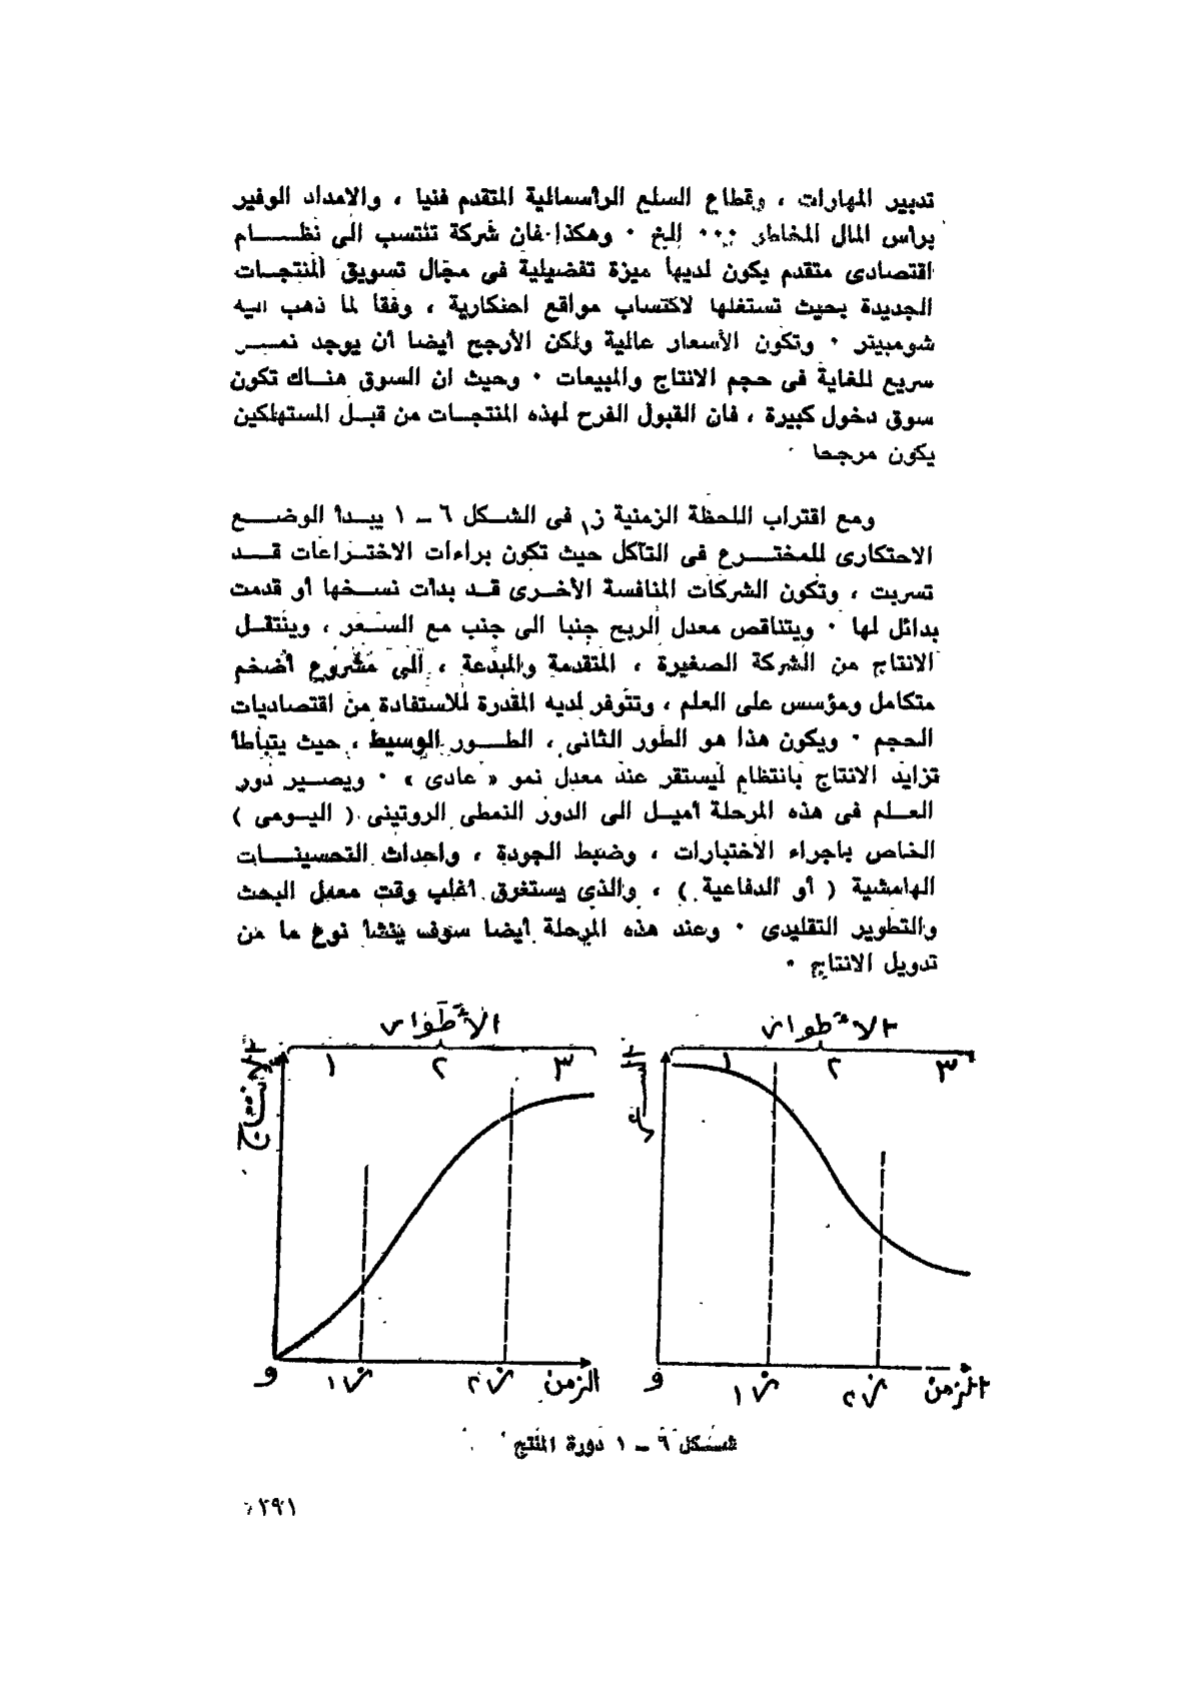 تدبير المهارات ، وقطاع السلع الرأسمالية المتقدم فنيا ، والامداد الوفير
براس المال المخاطر ٠٠٠ الخ ٠ وهكذا فان شركة تنتسب الى نظــــام
اقتصادى متقدم يكون لديها ميزة تفضيلية فى مجال تسويق المنتجــات
الجديدة بحيث تستغلها لاكتساب مواقع احتكارية ، وفقا لما ذهب اليه
شومبيتر ٠ وتكون الأسعار عالية ولكن الأرجح أيضا أن يوجد نمـــو
سريع للغاية فى حجم الانتاج والمبيعات ٠ وحيث ان السوق هنــاك تكون
سوق دخول كبيرة ، فان القبول الفرح لهذه المنتجــات من قبــل المستهلكين
يكون مرجحا ٠
ومع اقتراب اللحظة الزمنية ز١ فى الشــكل ٦ ــ ١ يبــدأ الوضــــع
الاحتكارى للمختــــرع فى التآكل حيث تكون براءات الاختــراعات قــــد
تسربت ، وتكون الشركات المنافسة الأخــرى قــد بدأت نســخها أو قدمت
بدائل لها ٠ ويتناقص معدل الربح جنبا الى جنب مع الســعر ، وينتقــل
الانتاج من الشركة الصغيرة ، المتقدمة والمبدعة ، الى مشروع أضخم
متكامل ومؤسس على العلم ، وتتوفر لديه المقدرة للاستفادة من اقتصاديات
الحجم ٠ ويكون هذا هو الطور الثانى ، الطــور الوسيط ، حيث يتباطأ
تزايد الانتاج بانتظام ليستقر عند معدل نمو « عادى » ٠ ويصــير دور
العــلم فى هذه المرحلة أميــل الى الدور النمطى الروتينى ( اليــومى )
الخاص باجراء الاختبارات ، وضبط الجودة ، واحداث التحسينــــات
الهامشية ( أو الدفاعية ) ، والذى يستغرق أغلب وقت معمل البحث
والتطوير التقليدى ٠ وعند هذه المرحلة أيضا سوف ينشأ نوع ما من
تدويل الانتاج ٠
الأطوار
١ ٢ ٣
السعر
و ز١ ز٢ الزمن
الأطوار
١ ٢ ٣
الانتاج
و ز١ ز٢ الزمن
شــكل ٦ ــ ١ دورة المنتج
٢٩١